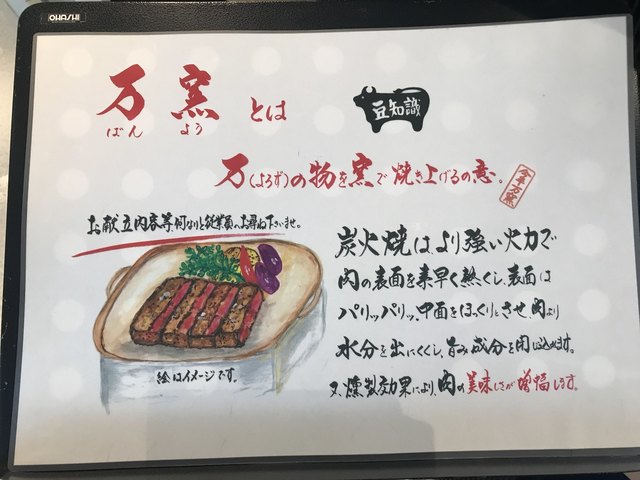 OHASHI
万窯とは
ばん よう
豆知識
万(よろず)の物を窯で焼き上げるの意。
今半万窯
お献立内容等何なりと従業員へお尋ね下さいませ。
炭火焼はより強い火力で
肉の表面を素早く熱くし、表面は
パリッパリッ、中面をほっくりとさせ、肉より
水分を出にくくし、旨み成分を閉じ込めます。
又、燻製効果により、肉の美味しさが増幅します。
絵はイメージです。